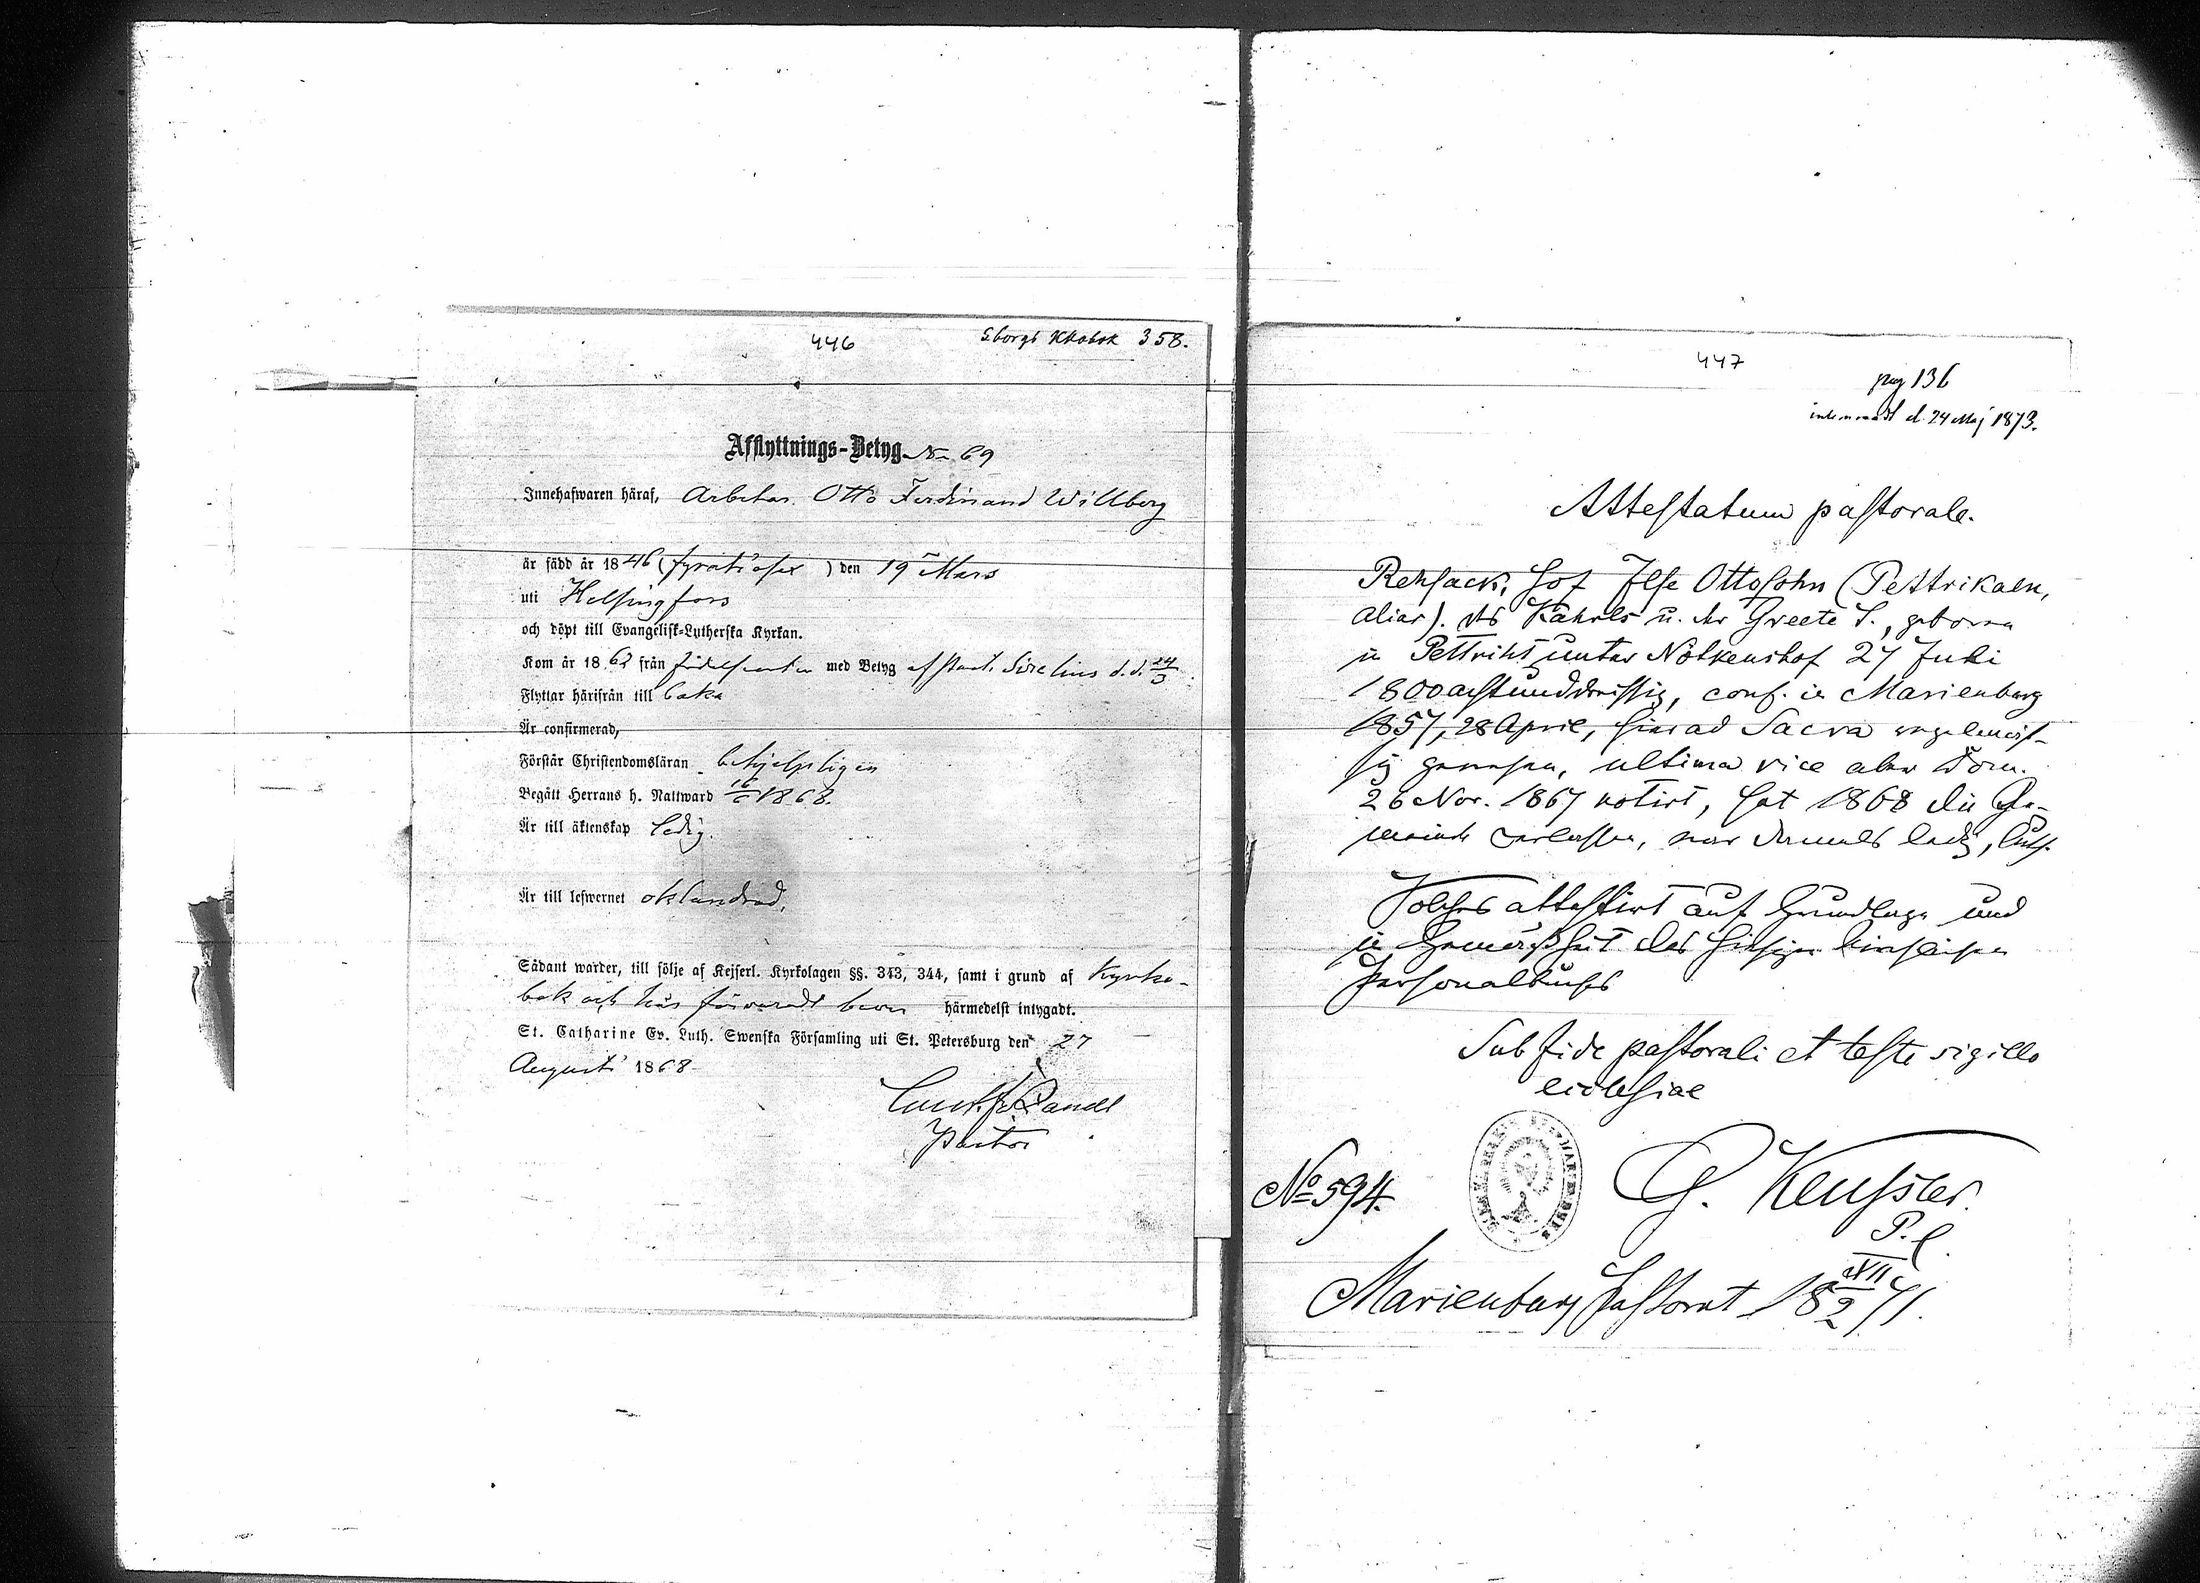 446
Sborgs Kkobok 358.
Afflyttnings-Betyg No 69
Innehafwaren häraf, Arbetar. Otto Ferdinand Willberg
är född år 1846 (fyratiosex) den 19 Mars
uti Helsingfors
och döpt till Evangelisk-Lutherska Kyrkan.
Kom år 1862 från med Betyg af Sirelius d.d. 24/3
Flyttar härifrån till baka
Är confirmerad,
Förstår Christendomsläran behjelpligen
Begått Herrans h. Nattward 16/6 1868.
Är till äktenskap ledig.
Är till lefwernet oklandrad.
Sådant warder, till följe af Kejserl. Kyrkolagen §§. 343, 344, samt i grund af Kyrko-
bok och här förvaradt härmedelst intygadt.
St. Catharine Ev. Luth. Swenska Församling uti St. Petersburg den 27
Augusti 1868
Pastor
447
pag 136
inlemnadt d. 24 Maj 1873.
Attestatum pastorale.
Rehsack, Hof Ilse Ottosohn (Pettrikaln,
alias). des Kahrls u. der Greete S., geboren
in Pettriht unter Nötkenshof 27 Juli
1800achtunddreissig, conf. in Marienburg
1857, 28 April, hier ad Sacra regelmäs-
sig gewesen, ultima vice aber Dom.
26 Nov. 1867 notirt, hat 1868 die Ge-
meinde verlassen, war damals ledig, luth.
Solches attestirt auf Grundlage und
in Gemässheit des hiesigen kirchlichen
Personalbuchs
Sub fide pastorali et teste sigillo
ecclesiae
No 594.
G. Keussler.
P. l.
Marienburg Pastorat 18 XII/2 71.